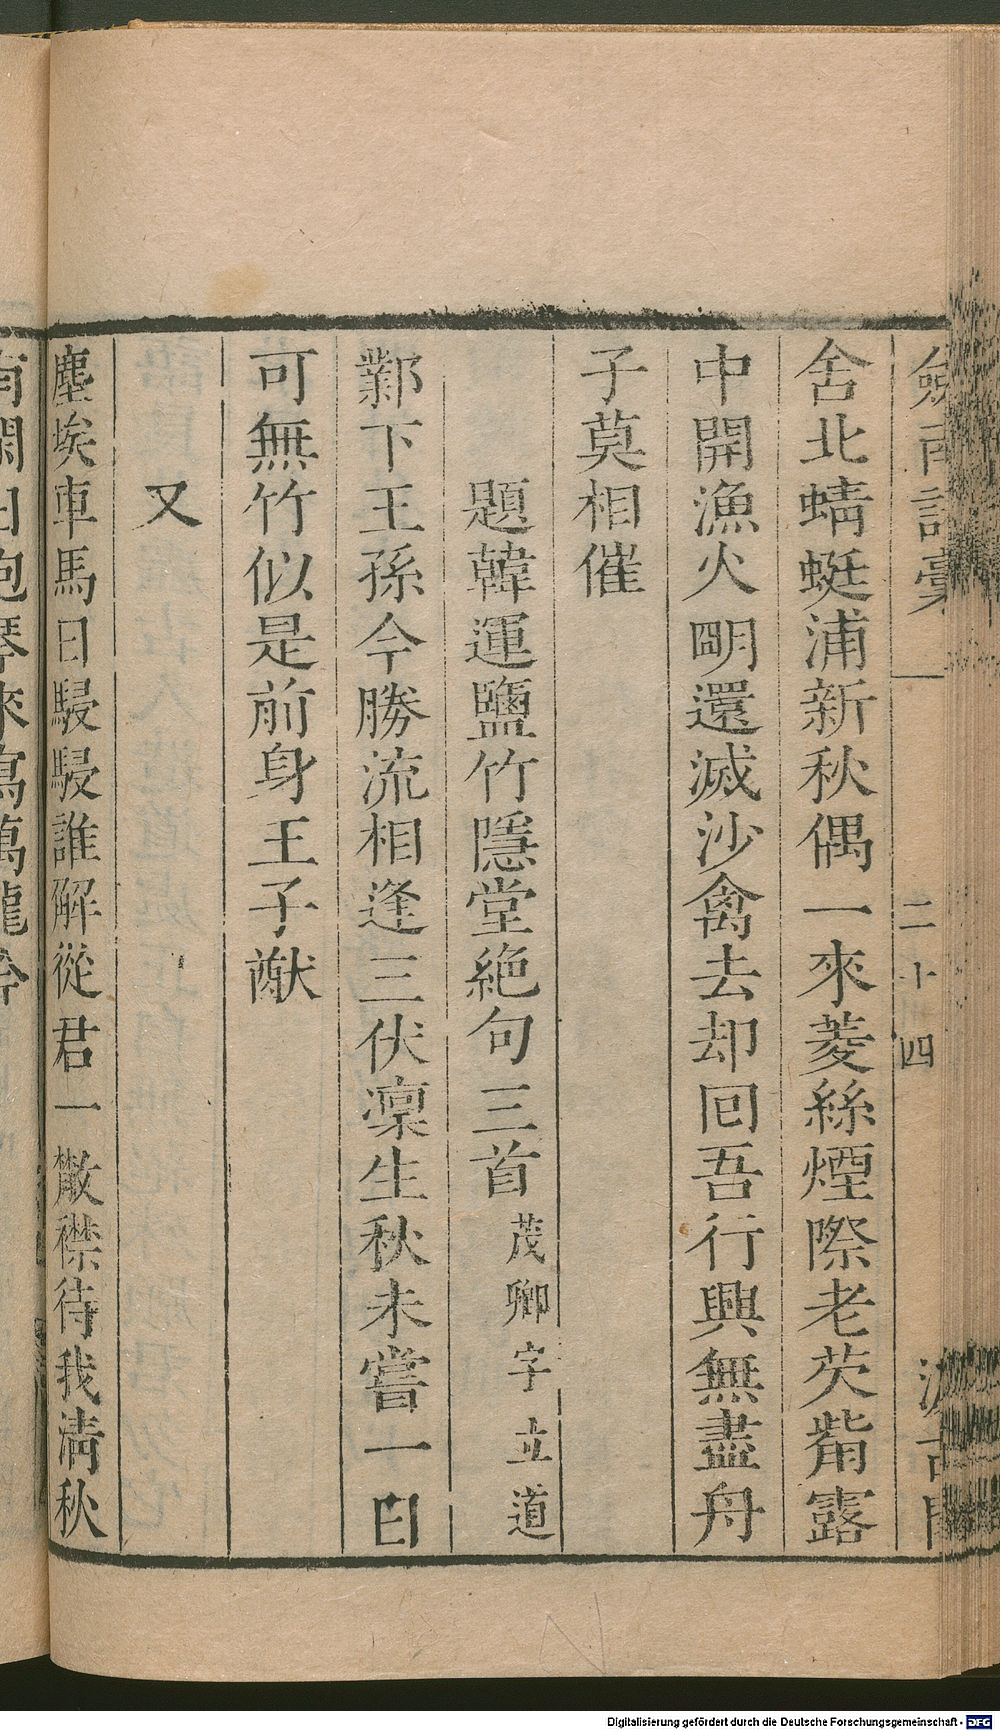 劍南詩稾 一 二十四 汲古閣
舍北蜻蜓浦新秋偶一來菱絲煙際老芡觜露
中開漁火明還滅沙禽去却回吾行興無盡舟
子莫相催
題韓運鹽竹隱堂絶句三首 茂卿字立道
鄴下王孫今勝流相逢三伏凛生秋未嘗一日
可無竹似是前身王子猷
又
塵埃車馬日駸駸誰解從君一散襟待我淸秋
有閑日抱琴來寫萬龍吟
Digitalisierung gefördert durch die Deutsche Forschungsgemeinschaft - DFG